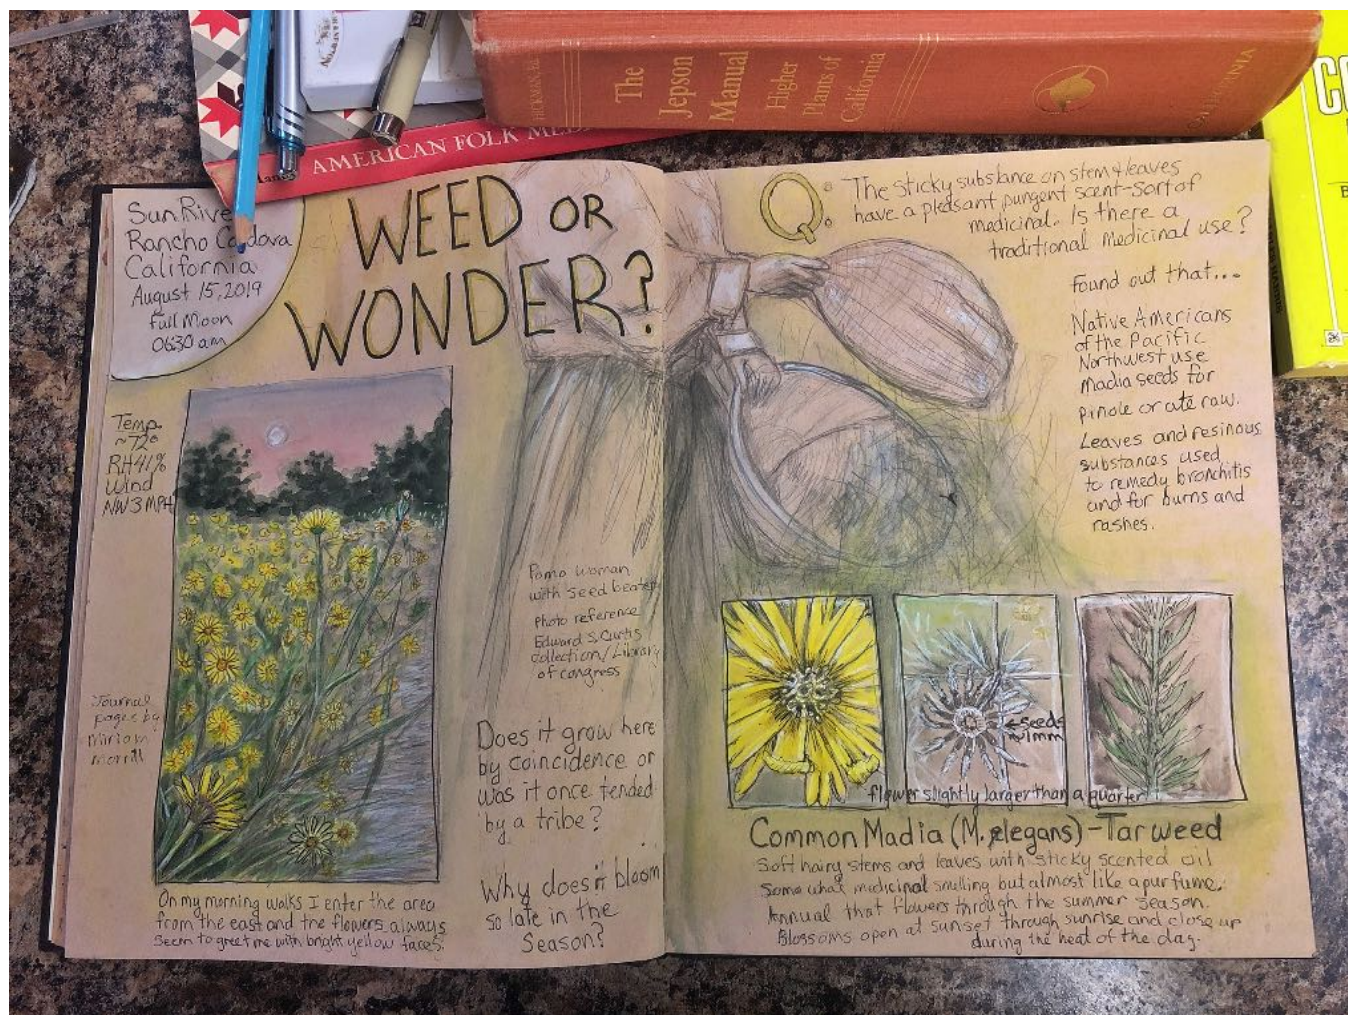 HICKMAN, Ed.
The
Jepson
Manual
Higher
Plants of
California
CALIFORNIA
AMERICAN FOLK MED
Sun Rive
Rancho Cordova
California
August 15, 2019
Full Moon
0630 am
WEED OR
WONDER?
Temp.
~72°
RH 41%
Wind
NW 3 MPH
Journal
pages by
Miriam
Morrill
On my morning walks I enter the area
from the east and the flowers always
seem to greet me with bright yellow faces.
Pomo Woman
with seed beater
photo reference
Edward S. Curtis
collection/Library
of congress
Does it grow here
by coincidence or
was it once tended
by a tribe?
Why does it bloom
so late in the
Season?
Q: The sticky substance on stem & leaves
have a pleasant pungent scent-sort of
medicinal. Is there a
traditional medicinal use?
Found out that...
Native Americans
of the Pacific
Northwest use
Madia seeds for
pinole or ate raw.
Leaves and resinous
substances used
to remedy bronchitis
and for burns and
rashes.
←seeds
~1mm
flower slightly larger than a quarter
Common Madia (M. elegans) - Tarweed
Soft hairy stems and leaves with sticky scented oil
Some what medicinal smelling but almost like a purfume.
Annual that flowers through the summer season.
Blossoms open at sunset through sunrise and close up
during the heat of the day.